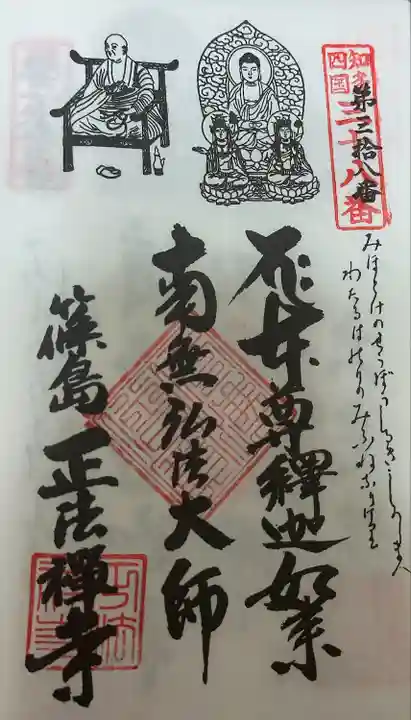 知多
四国
三十八番
第三拾八番
みほとけの
わたるはのりのみふね
本尊釋迦如来
南無弘法大師
篠島 正法禪寺